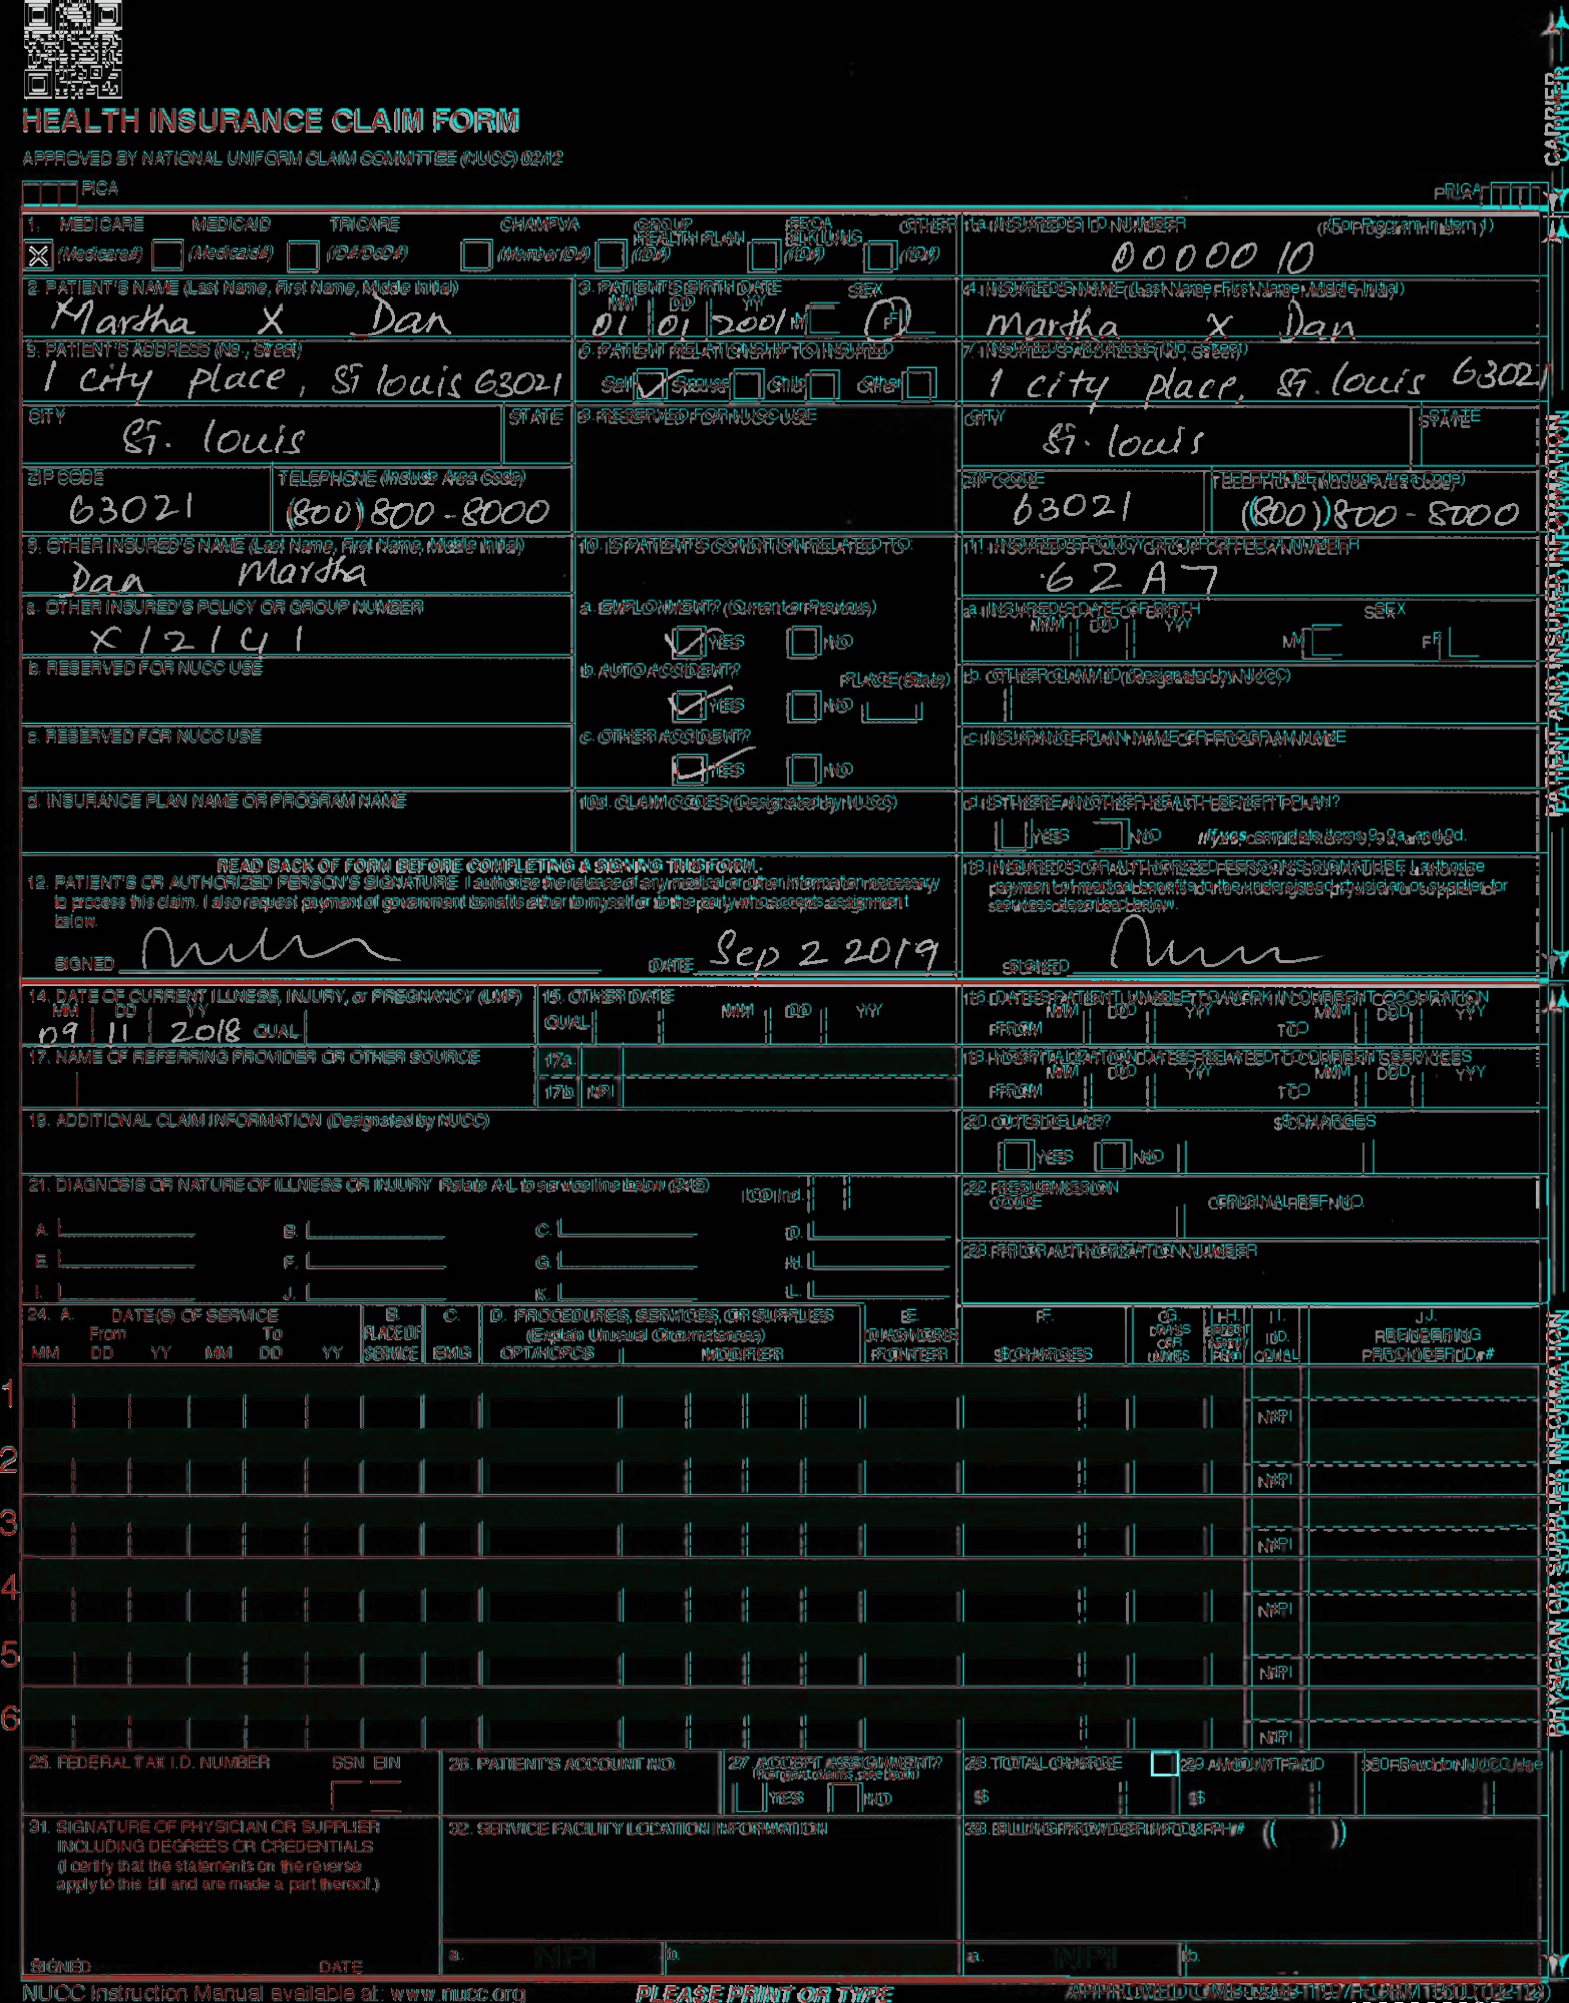 HEALTH INSURANCE CLAIM FORM
APPROVED BY NATIONAL UNIFORM CLAIM COMMITTEE (NUCC) 02/12
CARRIER
PICA
PICA
1. MEDICARE MEDICAID TRICARE CHAMPVA GROUP HEALTH PLAN FECA BLK LUNG OTHER
(Medicare#) (Medicaid#) (ID#/DoD#) (Member ID#) (ID#) (ID#) (ID#)
1a. INSURED'S I.D. NUMBER (For Program in Item 1)
0000010
2. PATIENT'S NAME (Last Name, First Name, Middle Initial)
Martha X Dan
3. PATIENT'S BIRTH DATE SEX
MM DD YY
01 01 2001 M F
4. INSURED'S NAME (Last Name, First Name, Middle Initial)
Martha X Dan
5. PATIENT'S ADDRESS (No., Street)
1 city place, St louis 63021
6. PATIENT RELATIONSHIP TO INSURED
Self Spouse Child Other
7. INSURED'S ADDRESS (No., Street)
1 city place, St. louis 63021
CITY STATE
St. louis
8. RESERVED FOR NUCC USE
CITY STATE
St. louis
ZIP CODE TELEPHONE (Include Area Code)
63021 (800) 800-8000
ZIP CODE TELEPHONE (Include Area Code)
63021 (800) 800-8000
9. OTHER INSURED'S NAME (Last Name, First Name, Middle Initial)
Dan Martha
10. IS PATIENT'S CONDITION RELATED TO:
11. INSURED'S POLICY GROUP OR FECA NUMBER
62A7
a. OTHER INSURED'S POLICY OR GROUP NUMBER
X12141
a. EMPLOYMENT? (Current or Previous)
YES NO
a. INSURED'S DATE OF BIRTH SEX
MM DD YY M F
b. RESERVED FOR NUCC USE
b. AUTO ACCIDENT? PLACE (State)
YES NO
b. OTHER CLAIM ID (Designated by NUCC)
c. RESERVED FOR NUCC USE
c. OTHER ACCIDENT?
YES NO
c. INSURANCE PLAN NAME OR PROGRAM NAME
d. INSURANCE PLAN NAME OR PROGRAM NAME
10d. CLAIM CODES (Designated by NUCC)
d. IS THERE ANOTHER HEALTH BENEFIT PLAN?
YES NO If yes, complete items 9, 9a, and 9d.
READ BACK OF FORM BEFORE COMPLETING & SIGNING THIS FORM.
12. PATIENT'S OR AUTHORIZED PERSON'S SIGNATURE I authorize the release of any medical or other information necessary
to process this claim. I also request payment of government benefits either to myself or to the party who accepts assignment
below.
SIGNED DATE Sep 2 2019
13. INSURED'S OR AUTHORIZED PERSON'S SIGNATURE I authorize
payment of medical benefits to the undersigned physician or supplier for
services described below.
SIGNED
PATIENT AND INSURED INFORMATION
14. DATE OF CURRENT ILLNESS, INJURY, or PREGNANCY (LMP)
MM DD YY
09 11 2018 QUAL.
15. OTHER DATE
QUAL. MM DD YY
16. DATES PATIENT UNABLE TO WORK IN CURRENT OCCUPATION
MM DD YY MM DD YY
FROM TO
17. NAME OF REFERRING PROVIDER OR OTHER SOURCE
17a.
17b. NPI
18. HOSPITALIZATION DATES RELATED TO CURRENT SERVICES
MM DD YY MM DD YY
FROM TO
19. ADDITIONAL CLAIM INFORMATION (Designated by NUCC)
20. OUTSIDE LAB? $ CHARGES
YES NO
21. DIAGNOSIS OR NATURE OF ILLNESS OR INJURY Relate A-L to service line below (24E) ICD Ind.
A. B. C. D.
E. F. G. H.
I. J. K. L.
22. RESUBMISSION CODE ORIGINAL REF. NO.
23. PRIOR AUTHORIZATION NUMBER
24. A. DATE(S) OF SERVICE B. C. D. PROCEDURES, SERVICES, OR SUPPLIES E. F. G. H. I. J.
From To PLACE OF (Explain Unusual Circumstances) DIAGNOSIS DAYS OR ID. RENDERING
MM DD YY MM DD YY SERVICE EMG CPT/HCPCS MODIFIER POINTER $ CHARGES UNITS QUAL. PROVIDER ID. #
1 NPI
2 NPI
3 NPI
4 NPI
5 NPI
6 NPI
PHYSICIAN OR SUPPLIER INFORMATION
25. FEDERAL TAX I.D. NUMBER SSN EIN
26. PATIENT'S ACCOUNT NO.
27. ACCEPT ASSIGNMENT?
YES NO
28. TOTAL CHARGE
$
29. AMOUNT PAID
$
30. Rsvd for NUCC Use
31. SIGNATURE OF PHYSICIAN OR SUPPLIER
INCLUDING DEGREES OR CREDENTIALS
(I certify that the statements on the reverse
apply to this bill and are made a part thereof.)
SIGNED DATE
32. SERVICE FACILITY LOCATION INFORMATION
a. NPI b.
33. BILLING PROVIDER INFO & PH # ( )
a. NPI b.
NUCC Instruction Manual available at: www.nucc.org
PLEASE PRINT OR TYPE